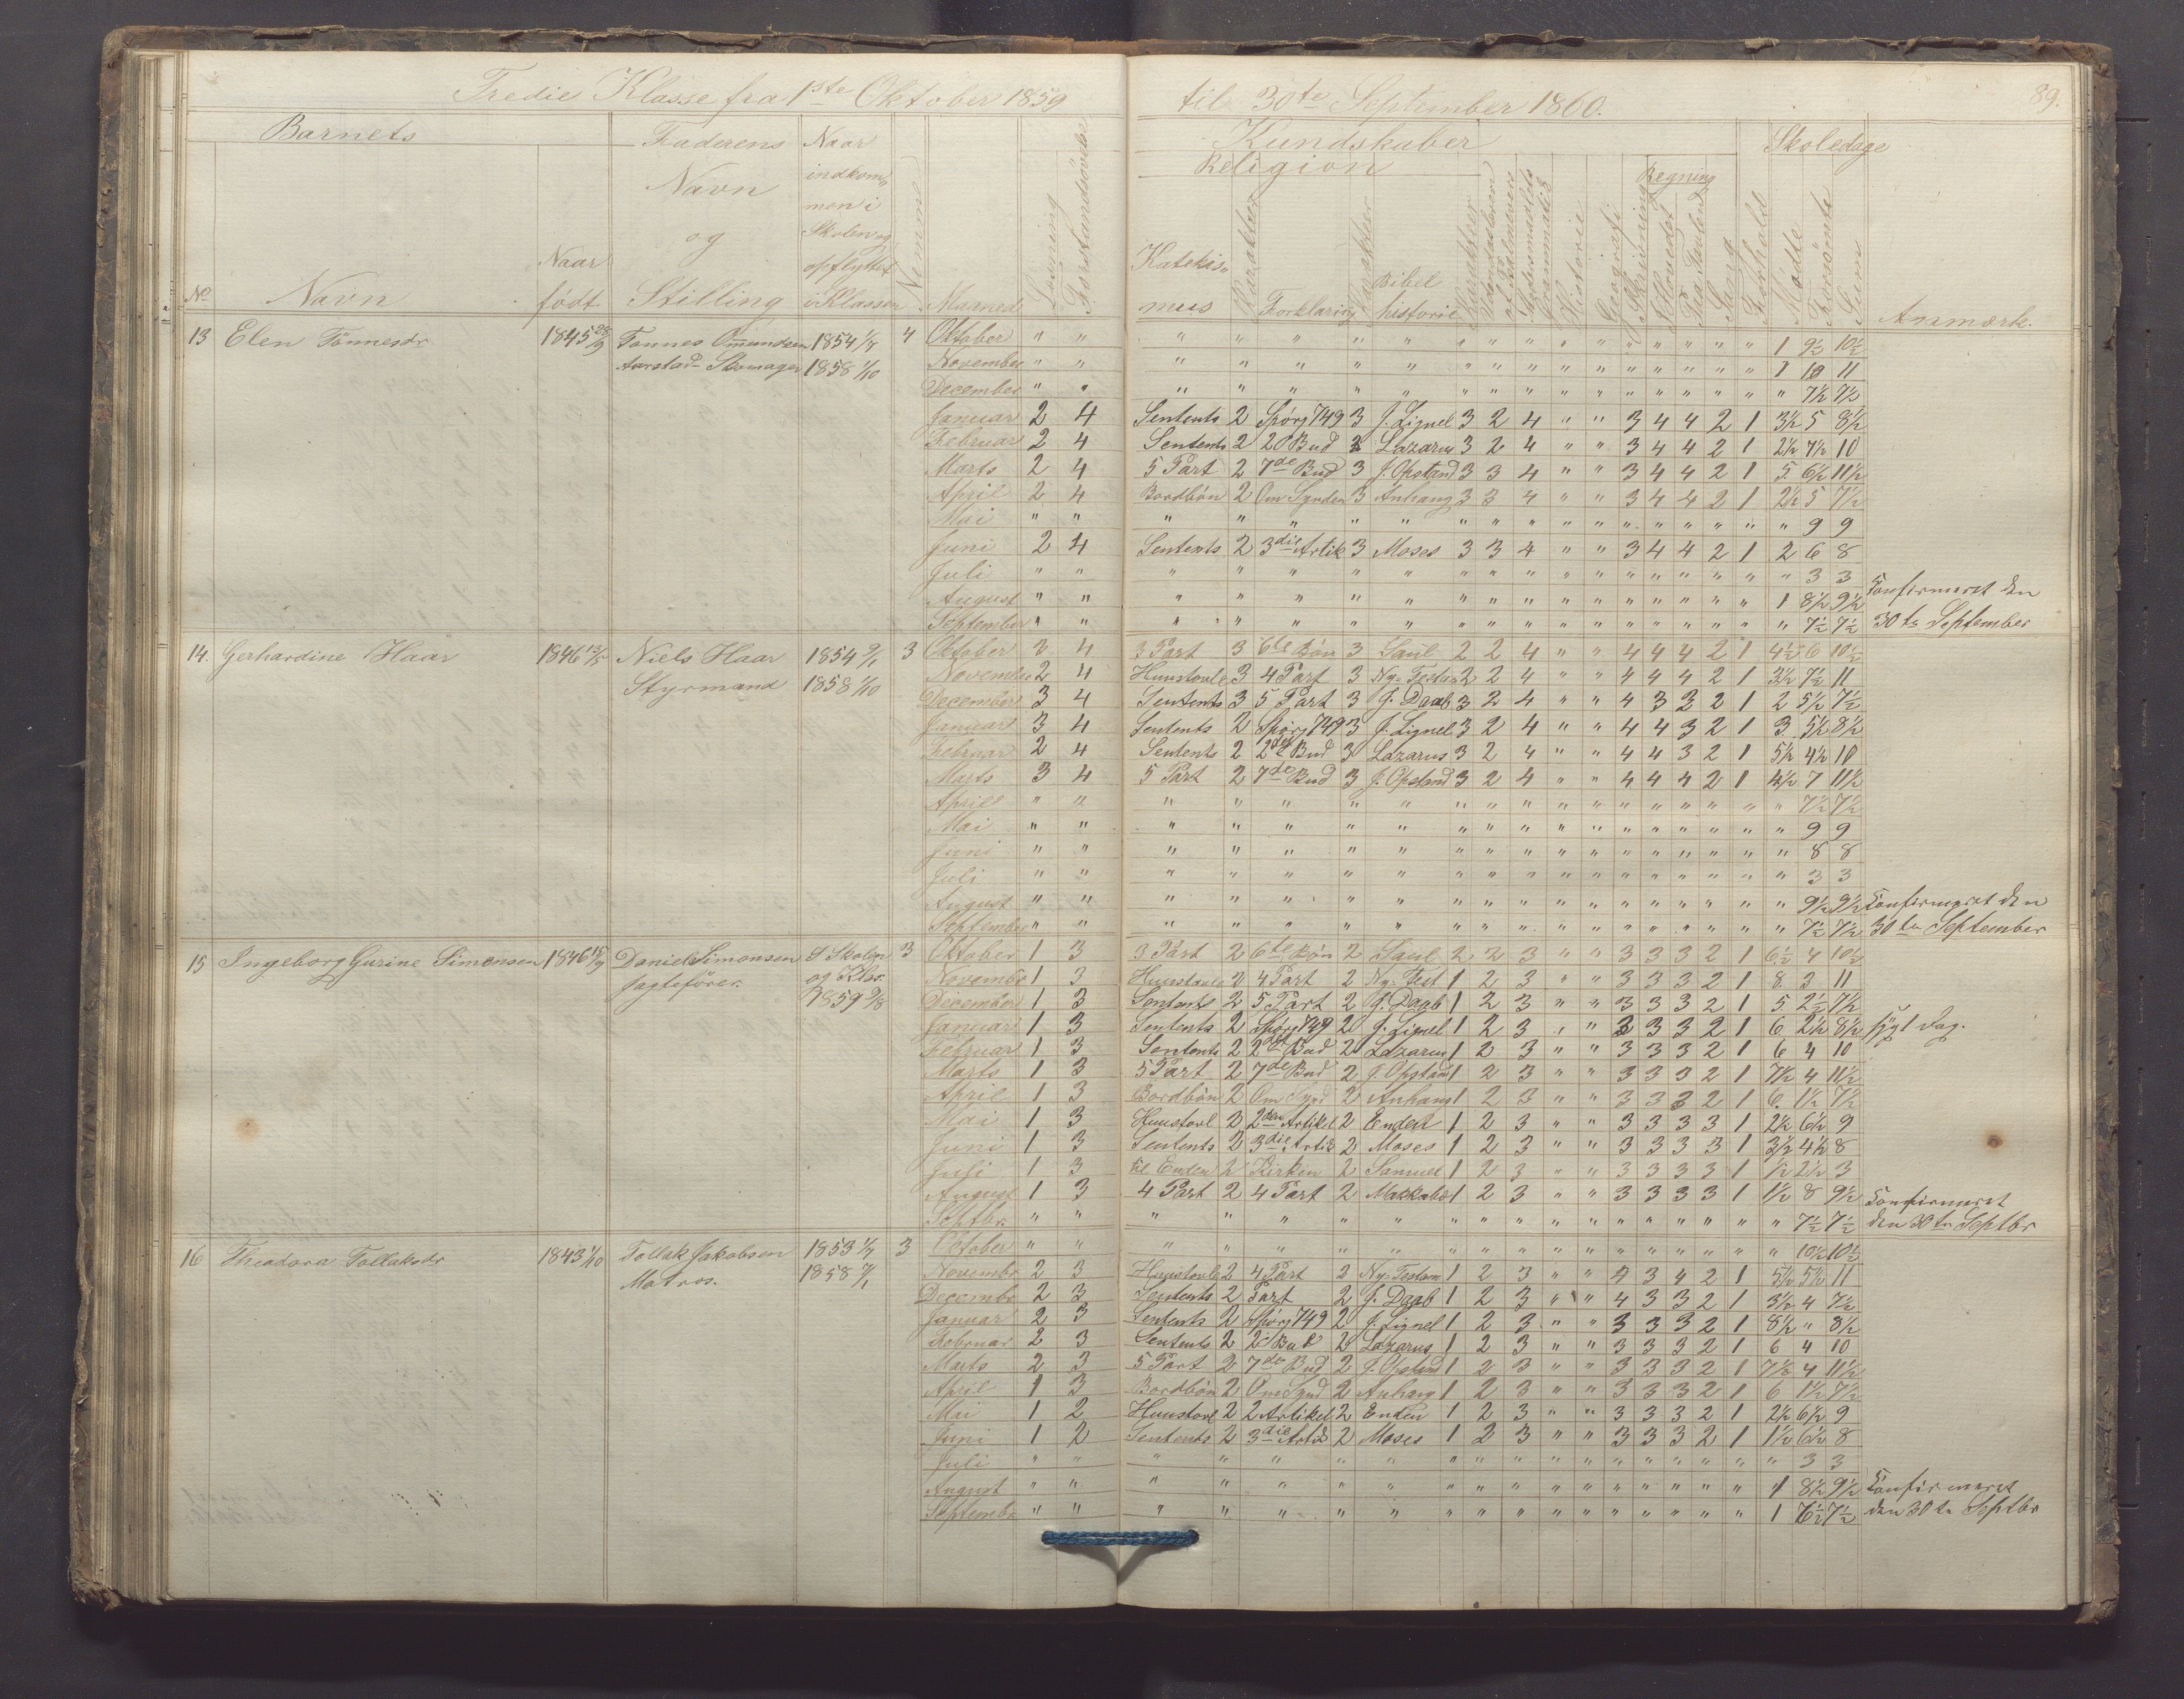 Tredie Klasse fra 1ste Oktober 1859 til 30te September 1860. 89.
Barnets Faderens Naar Kundskaber Skoledage
Navn indkom= Religion Regning
men i
og Skolen og
Naar opflyttet Katekis=
No Navn født Stilling i Klassen Nemme Maaned Læsning Forstandsøvelser mus Karakter Forklaring Karakter Bibel historie Karakter Historie Geografi Skrivning Hovedet Paa Tavlen Sang Forhold Mødte Forsømte Sum Anmærk.
13 Elen Tönnesdr 1845 28/9 Tönnes Ommundsen 1854 1/7 4 Oktober " " " " " " " " " " " " " " " " " " 1 9½ 10½
Aarstad- Skomager 1858 1/10 November " " " " " " " " " " " " " " " " " " 1 10 11
December " " " " " " " " " " " " " " " " " " " 7½ 7½
Januar 2 4 Sentents 2 Spörj 749 3 J. Lignel 3 2 4 " " 3 4 4 2 1 3½ 5 8½
Februar 2 4 Sentents 2 2d Bud 3 Lazarus 3 2 4 " " 3 4 4 2 1 2½ 7½ 10
Marts 2 4 5 Part 2 7de Bud 3 J. Opstand 3 3 4 " " 3 4 4 2 1 5 6½ 11½
April 2 4 Bordbön 2 Om Synden 3 Anhang 3 3 4 " " 3 4 4 2 1 2½ 5 7½
Mai " " " " " " " " " " " " " " " " " " " 9 9
Juni 2 4 Sentents 2 3die Artik 3 Moses 3 3 4 " " 3 4 4 2 1 2 6 8
Juli " " " " " " " " " " " " " " " " " " " 3 3
August " " " " " " " " " " " " " " " " " " 1 8½ 9½ Confirmeret den
September " " " " " " " " " " " " " " " " " " " 7½ 7½ 30te September
14. Gerhardine Haar 1846 13/5 Niels Haar 1854 9/1 3 Oktober 3 4 3 Part 3 6te Bön 3 Saul 2 2 4 " " 4 4 4 2 1 4½ 6 10½
Styrmand 1858 1/10 November 2 4 Huustavle 3 4 Part 3 Ny. Testm 2 2 4 " " 4 4 4 2 1 3½ 7½ 11
December 3 4 Sentents 3 5 Part 3 J. Daab 3 2 4 " " 4 3 3 2 1 2 5½ 7½
Januar 3 4 Sentents 2 Spörj 749 3 J. Lignel 3 2 4 " " 4 4 3 2 1 3 5½ 8½
Februar 2 4 Sentents 2 2det Bud 3 Lazarus 3 2 4 " " 4 4 3 2 1 5½ 4½ 10
Marts 3 4 5 Part 2 7de Bud 3 J. Opstand 3 2 4 " " 4 4 4 2 1 4½ 7 11½
April " " " " " " " " " " " " " " " " " " " 7½ 7½
Mai " " " " " " " " " " " " " " " " " " " 9 9
Juni " " " " " " " " " " " " " " " " " " " 8 8
Juli " " " " " " " " " " " " " " " " " " " 3 3
August " " " " " " " " " " " " " " " " " " " 9½ 9½ Confirmeret den
September " " " " " " " " " " " " " " " " " " " 7½ 7½ 30te September
15 Ingeborg Gurine Simonsen 1846 15/9 Daniel Simonsen I Skolen 3 Oktober 1 3 3 Part 2 6te Bön 2 Saul 2 2 3 " " 3 3 3 2 1 6½ 4 10½
Jagtefører og Klss. Novembr 1 3 Huustavle 2 4 Part 2 Ny. Test 1 2 3 " " 3 3 3 2 1 8 3 11
1859 9/8 December 1 3 Sentents 2 5 Part 2 J. Daab 1 2 3 " " 3 3 3 2 1 5 2½ 7½
Januar 1 3 Sentents 2 Spörj 749 2 J. Lignel 1 2 3 " " 3 3 3 2 1 6 2½ 8½ sygl Dag.
Februar 1 3 Sentents 2 2det Bud 2 Lazarus 1 2 3 " " 3 3 3 2 1 6 4 10
Marts 1 3 5 Part 2 7de Bud 2 J. Opstand 1 2 3 " " 3 3 3 2 1 7½ 4 11½
April 1 3 Bordbön 2 Om Synd 2 Anhang 1 2 3 " " 3 3 3 2 1 6 1½ 7½
Mai 1 3 Huustavl 2 2den Artikel 2 Enden 1 2 3 " " 3 3 3 3 1 2½ 6½ 9
Juni 1 3 Sentents 2 3die Artik 2 Moses 1 2 3 " " 3 3 3 3 1 3½ 4½ 8
Juli 1 3 til Enden 2 Kirken 2 Samuel 1 2 3 " " 3 3 3 3 1 ½ 2½ 3
August 1 3 4 Part 2 4 Part 2 Makkabæ 1 2 3 " " 3 3 3 3 1 1½ 8 9½ Confirmeret
Septbr. " " " " " " " " " " " " " " " " " " " 7½ 7½ den 30te Septbr
16 Theodora Tollaksdr 1843 1/10 Tollak Jakobsen 1853 1/7 3 Oktober " " " " " " " " " " " " " " " " " " " 10½ 10½
Matros. 1858 7/1 Novembr 2 3 Huustavle 2 4 Part 3 Ny. Testam 1 2 3 " " 4 3 4 2 1 5½ 5½ 11
Decembr 2 3 Sentents 2 Part 2 J. Daab 1 2 3 " " 4 3 3 2 1 3½ 4 7½
Januar 2 3 Sentents 2 Spörj 749 2 J. Lignel 1 2 3 " " 3 3 3 2 1 8½ " 8½
Februar 2 3 Sentents 2 2d Bud 2 Lazarus 1 2 3 " " 3 3 3 2 1 6 4 10
Marts 2 3 5 Part 2 7de Bud 2 J. Opstand 1 2 3 " " 3 3 3 2 1 7½ 4 11½
April 1 3 Bordbön 2 Om Synd 2 Anhang 1 2 3 " " 3 3 3 2 1 6 1½ 7½
Mai 1 2 Huustavl 2 2 Artikel 2 Enden 1 2 3 " " 3 3 3 2 1 2½ 6½ 9
Juni 1 2 Sentents 2 3die Artik 2 Moses 1 2 3 " " 3 3 3 2 1 1½ 6½ 8
Juli " " " " " " " " " " " " " " " " " " " 3 3
August " " " " " " " " " " " " " " " " " " 1 8½ 9½ Confirmeret
Septembr " " " " " " " " " " " " " " " " " " 1 6½ 7½ den 30te Septbr